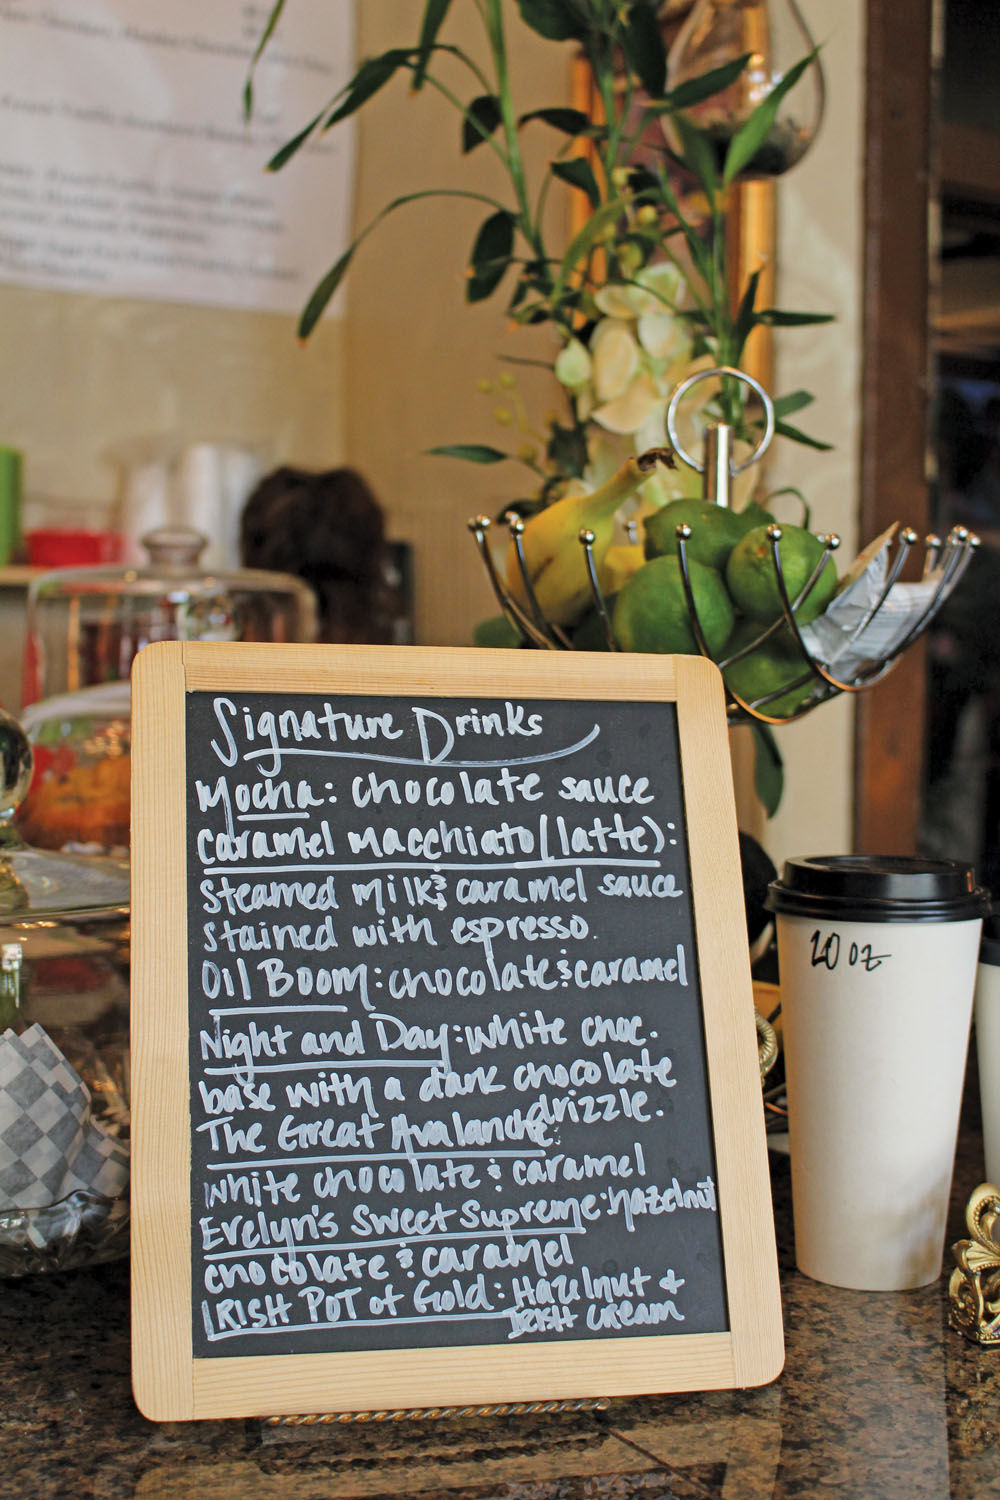 Signature Drinks
Mocha: chocolate sauce
caramel macchiato (latte):
steamed milk & caramel sauce
stained with espresso.
Oil Boom: chocolate & caramel
Night and Day: white choc.
base with a dark chocolate
drizzle.
The Great Avalanche:
white chocolate & caramel
Evelyn's Sweet Supreme: hazelnut
chocolate & caramel
IRISH POT of Gold: Hazelnut &
IRISH CREAM
20 oz